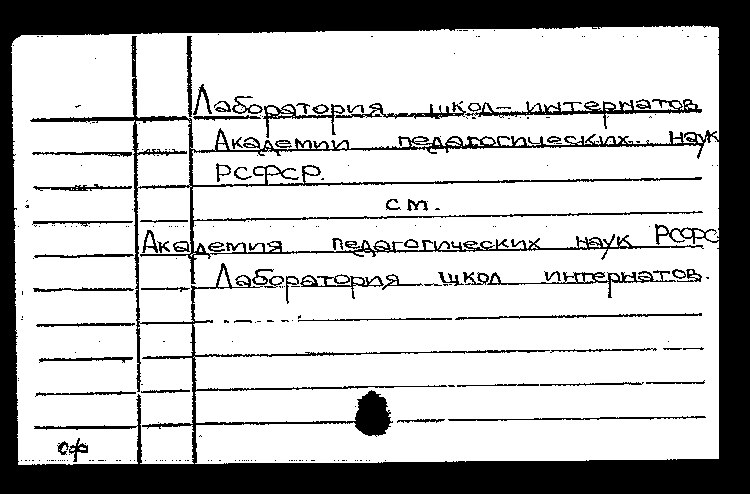 Лаборатория школ-интернатов
Академии педагогических наук
РСФСР.
см.
Академия педагогических наук РСФС
Лаборатория школ интернатов.
оф